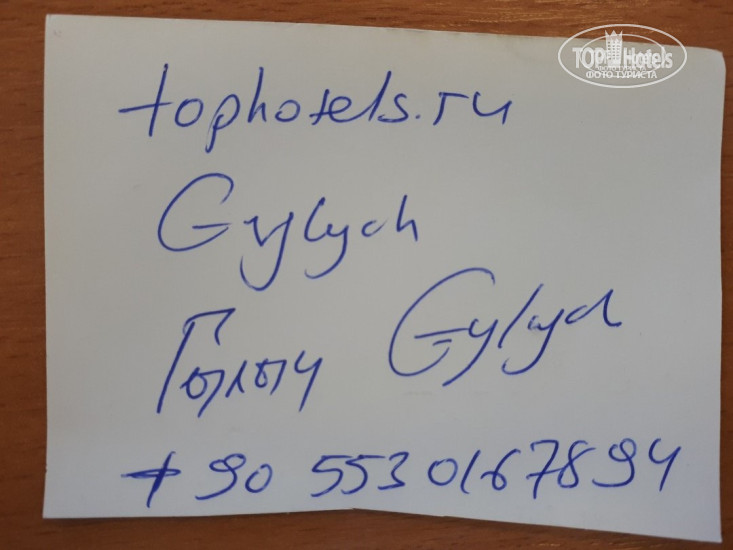 TOP Hotels
ФОТО ТУРИСТА
tophotels.ru
Gylych
Гылыч Gylych
+90 553 0167894